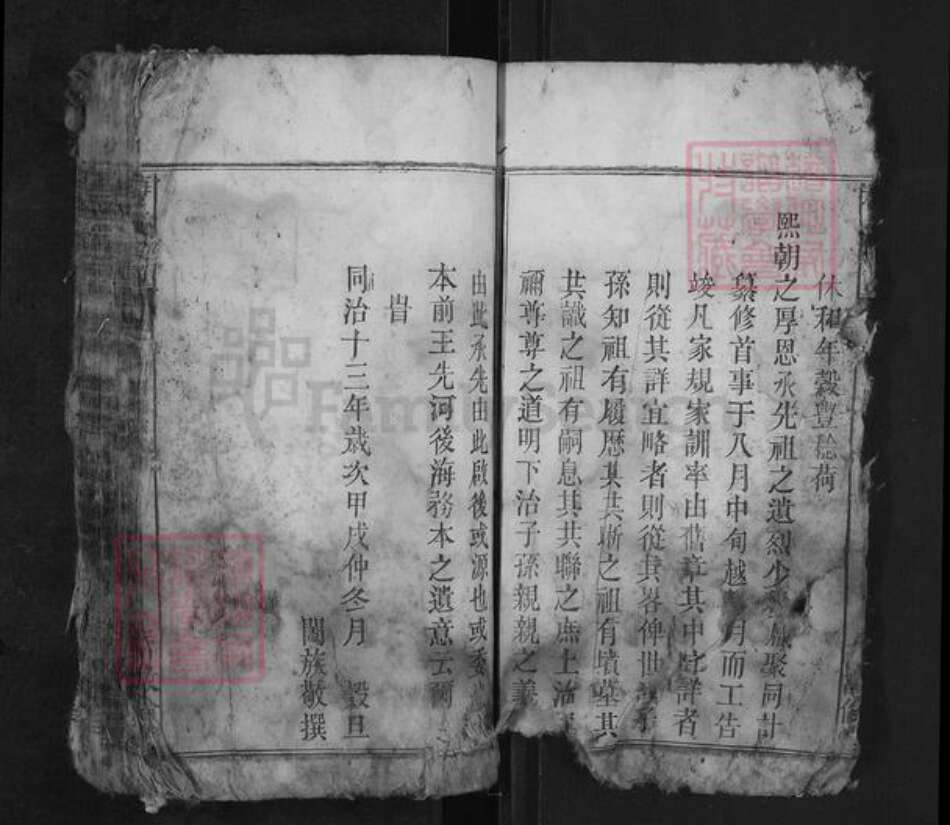 休和年穀豐稔荷
熙朝之厚恩承先祖之遺烈少聚同計
纂修首事于八月中旬越月而工告
竣凡家規家訓率由舊章其中宜詳者
則從其詳宜略者則從其畧俾世孫
孫知祖有履歷其共晰之祖有墳墓其
共識之祖有嗣息其共聯之庶上治
禰尊尊之道明下治子孫親親之義
由此承先由此啟後或源也或委
本前王先河後海務本之遺意云爾
旹
同治十三年歲次甲戌仲冬月 穀旦
闔族敬撰
FamilySearch